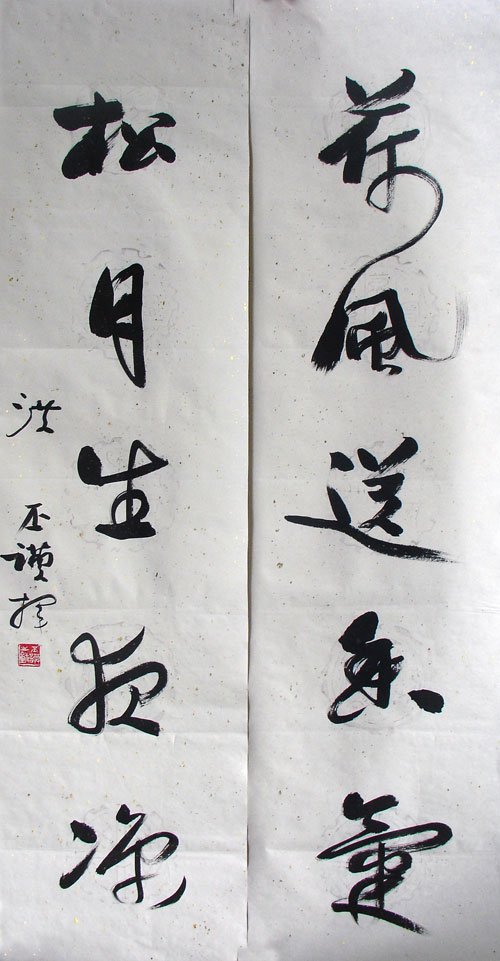 荷風送香氣
松月生夜凉
洪丕謨